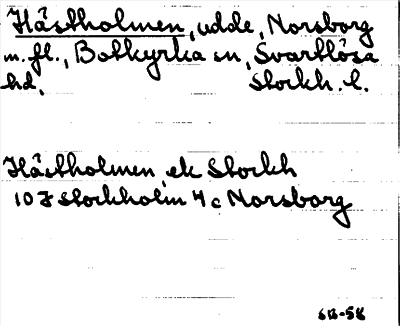 Hästholmen, udde, Norsborg
m. fl., Botkyrka sn, Svartlösa
hd, Stockh. l.
Hästholmen ek Stockh
10 I Stockholm 4 c Norsborg